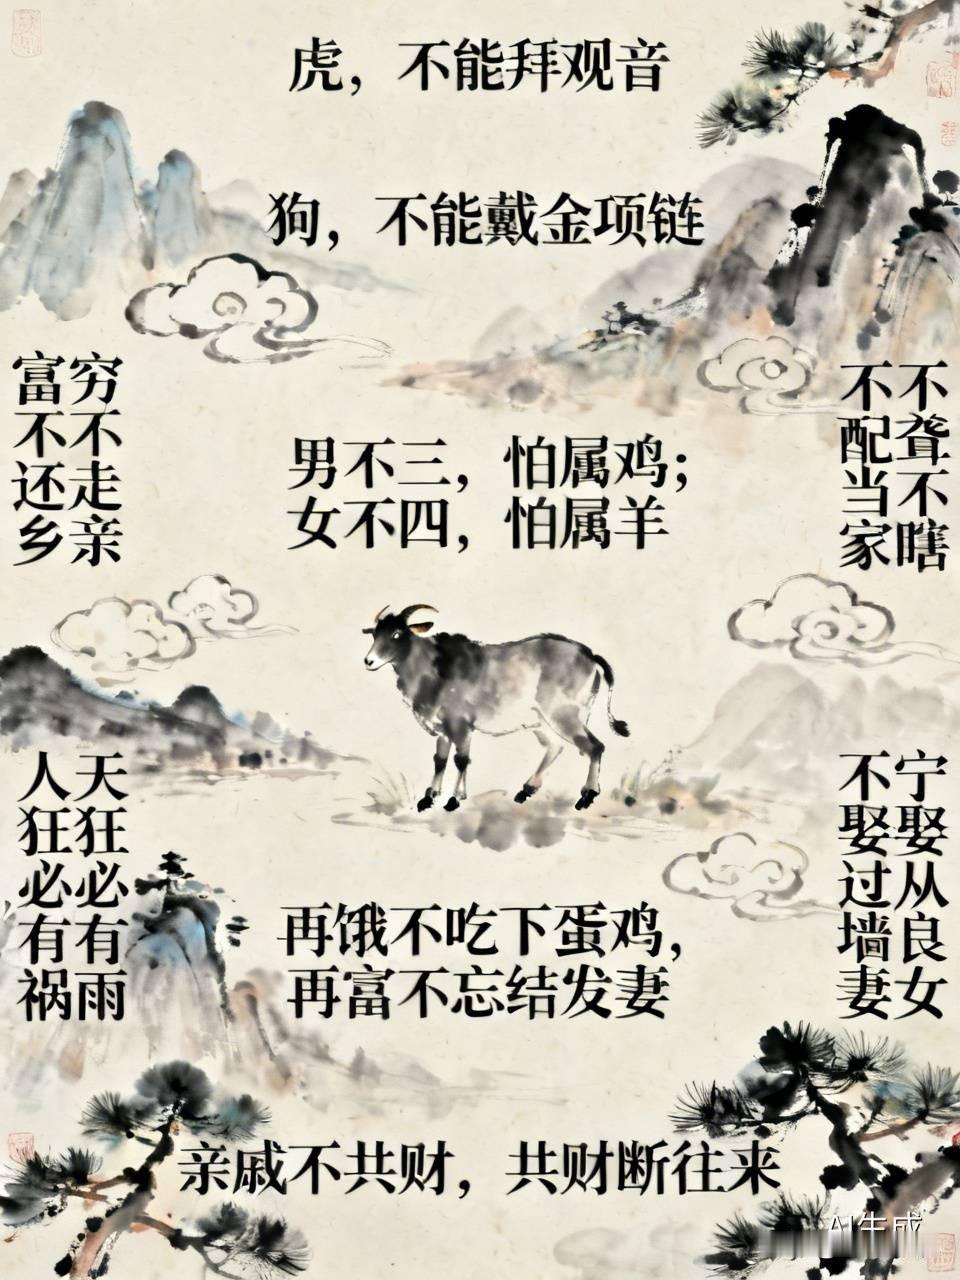 虎，不能拜观音
狗，不能戴金项链
穷不走亲
富不还乡
男不三，怕属鸡；
女不四，怕属羊
不聋不瞎
不配当家
天狂必有雨
人狂必有祸
再饿不吃下蛋鸡，
再富不忘结发妻
宁娶从良女
不娶过墙妻
亲戚不共财，共财断往来
AI生成